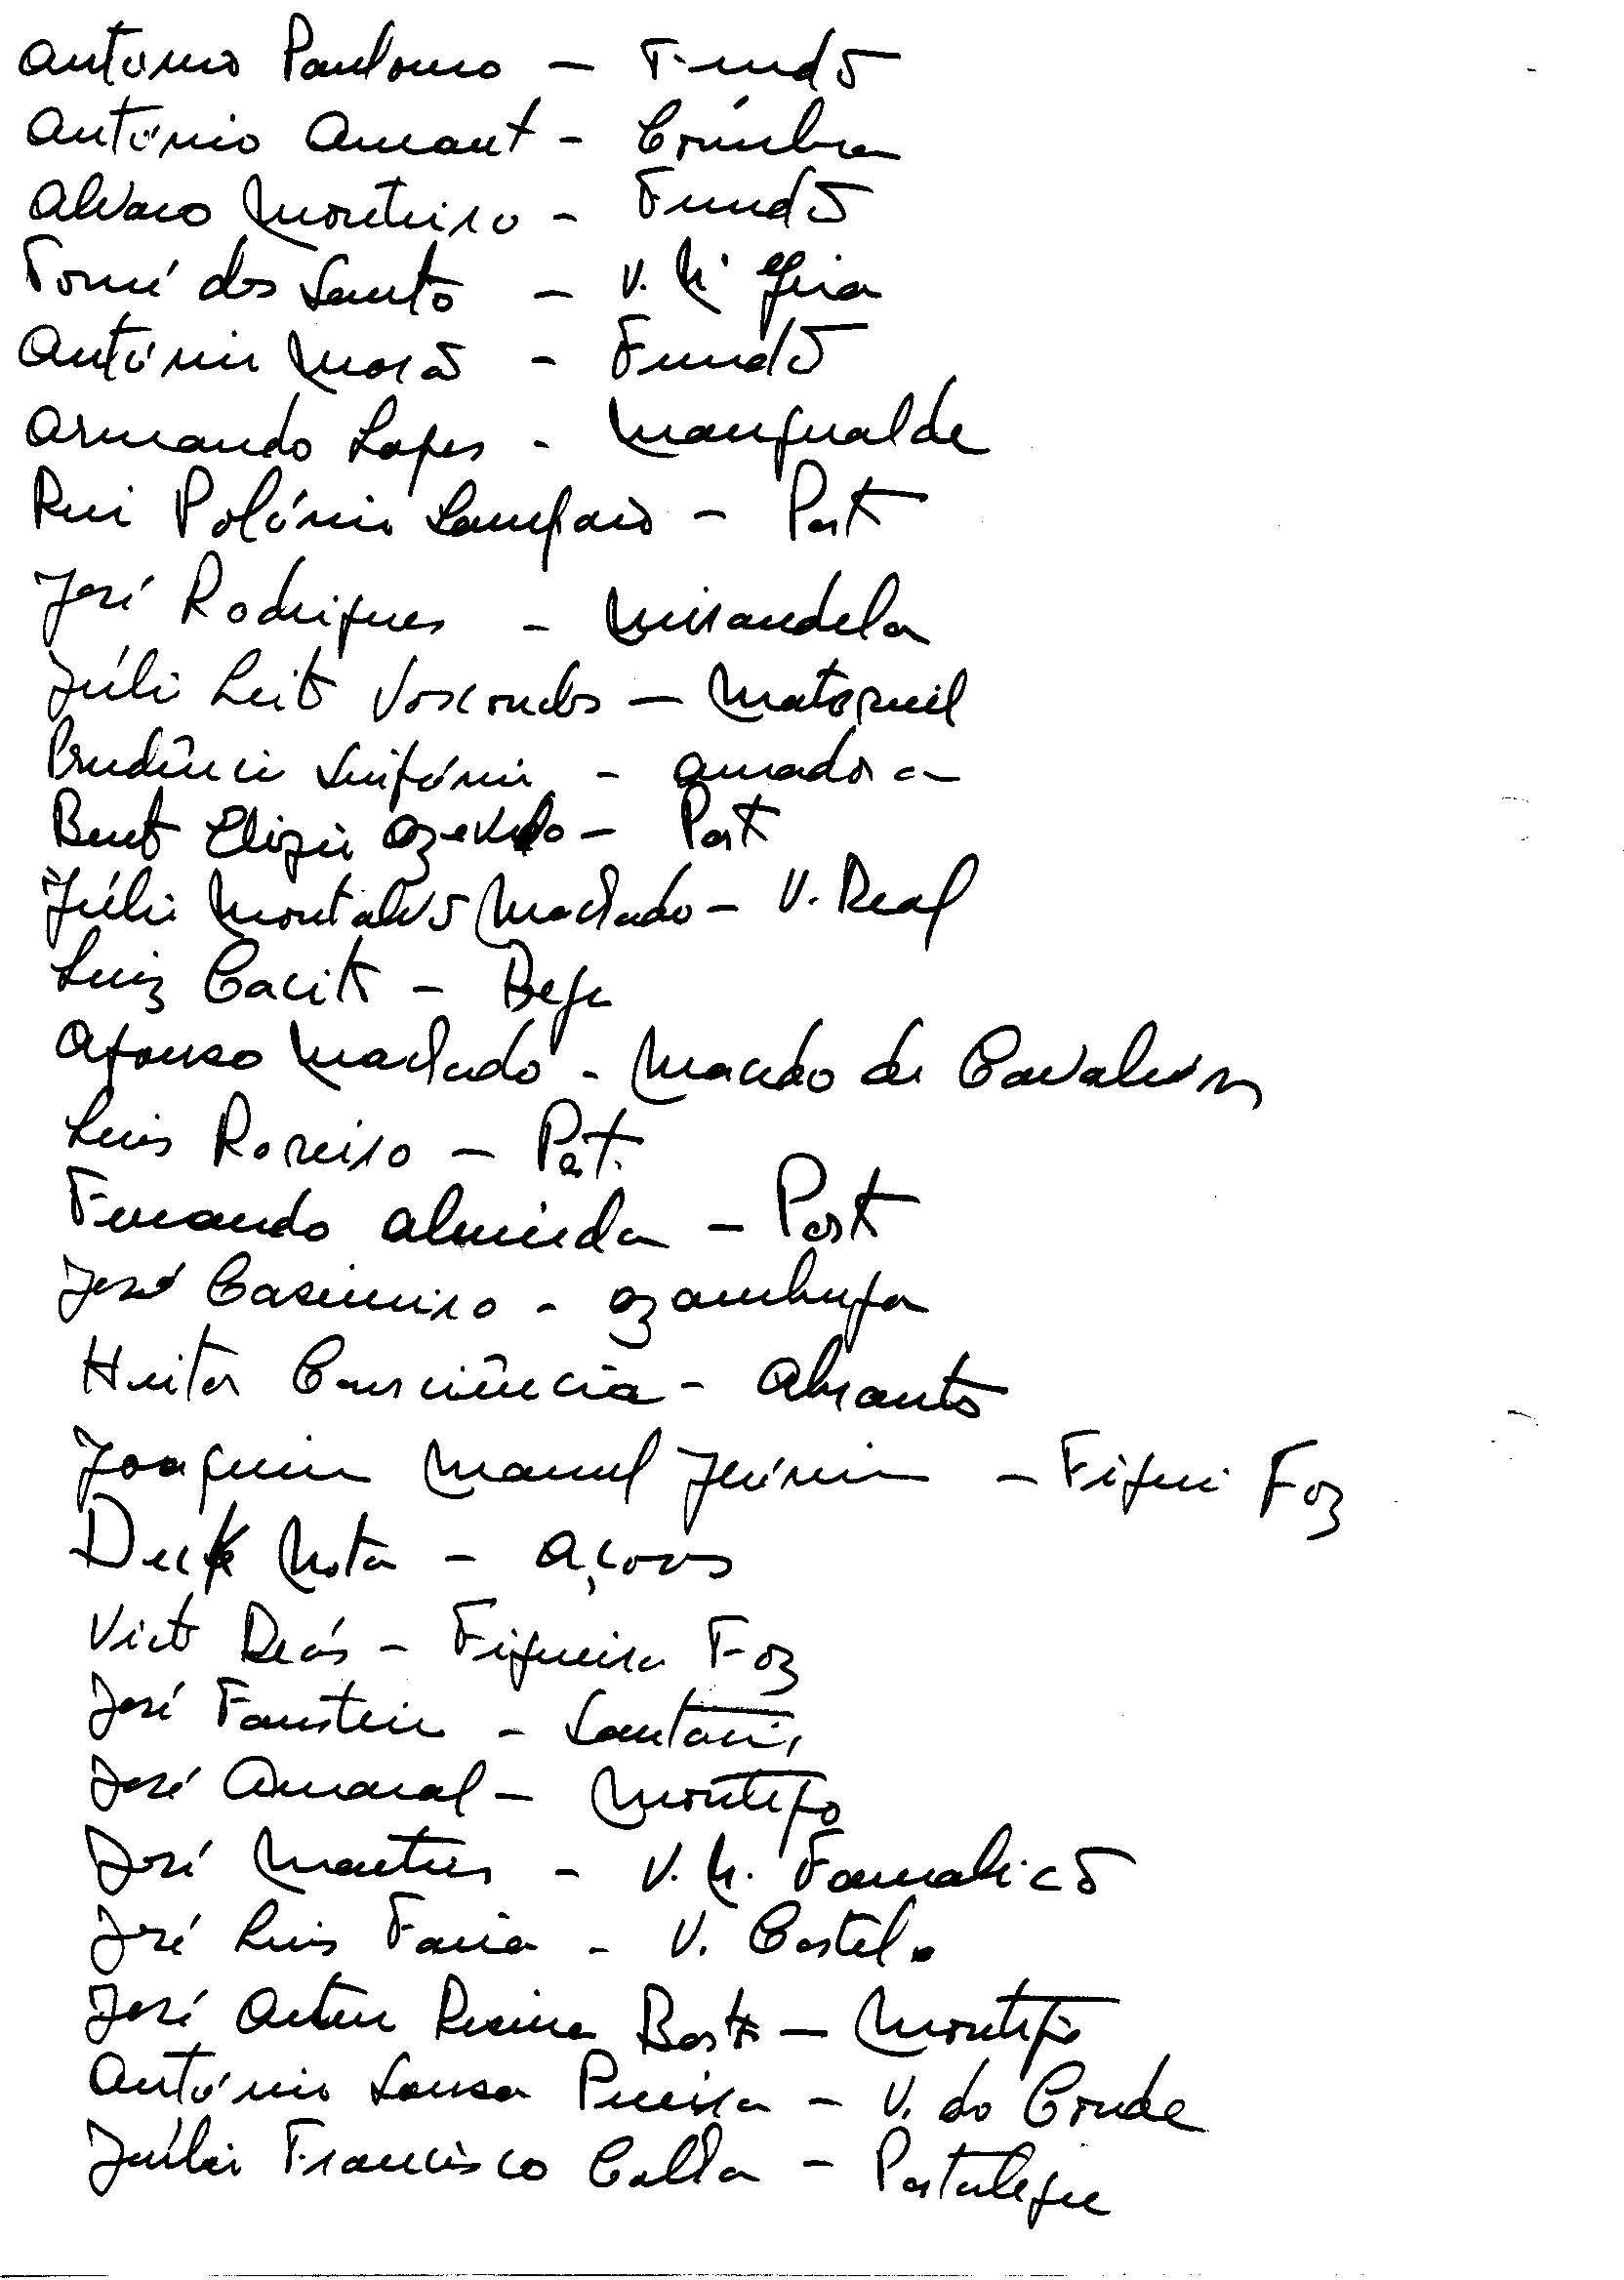 António Paulouro – Fundão
António Arnaut – Coimbra
Alvaro Monteiro – Fundão
Tomé dos Santos – V. N. Feira
António Mourão – Fundão
Armando Lopes – Mangualde
Rui Polónio Sampaio – Porto
José Rodrigues – Mirandela
Júlio Leite Vasconcelos –
Prudência – Amadora
Bento Elizio Azevedo – Porto
Júlio Montalvão Machado – V. Real
Luiz Cacito – Beja
Afonso Machado – Macedo de Cavaleiros
Luis Roseiro – Porto
Fernando Almeida – Porto
José Casimiro – Azambuja
Heitor Consciência – Abrantes
Joaquim Manuel Jerónimo – Figueira Foz
Mota – Açores
Victor – Figueira Foz
José Faustino – Santarém
José Amaral – Montijo
José Martins – V. N. Famalicão
José Luis Faria – V. Castelo
José Artur Bastos – Montijo
António Sousa Pereira – V. do Conde
Júlio Francisco – Portalegre